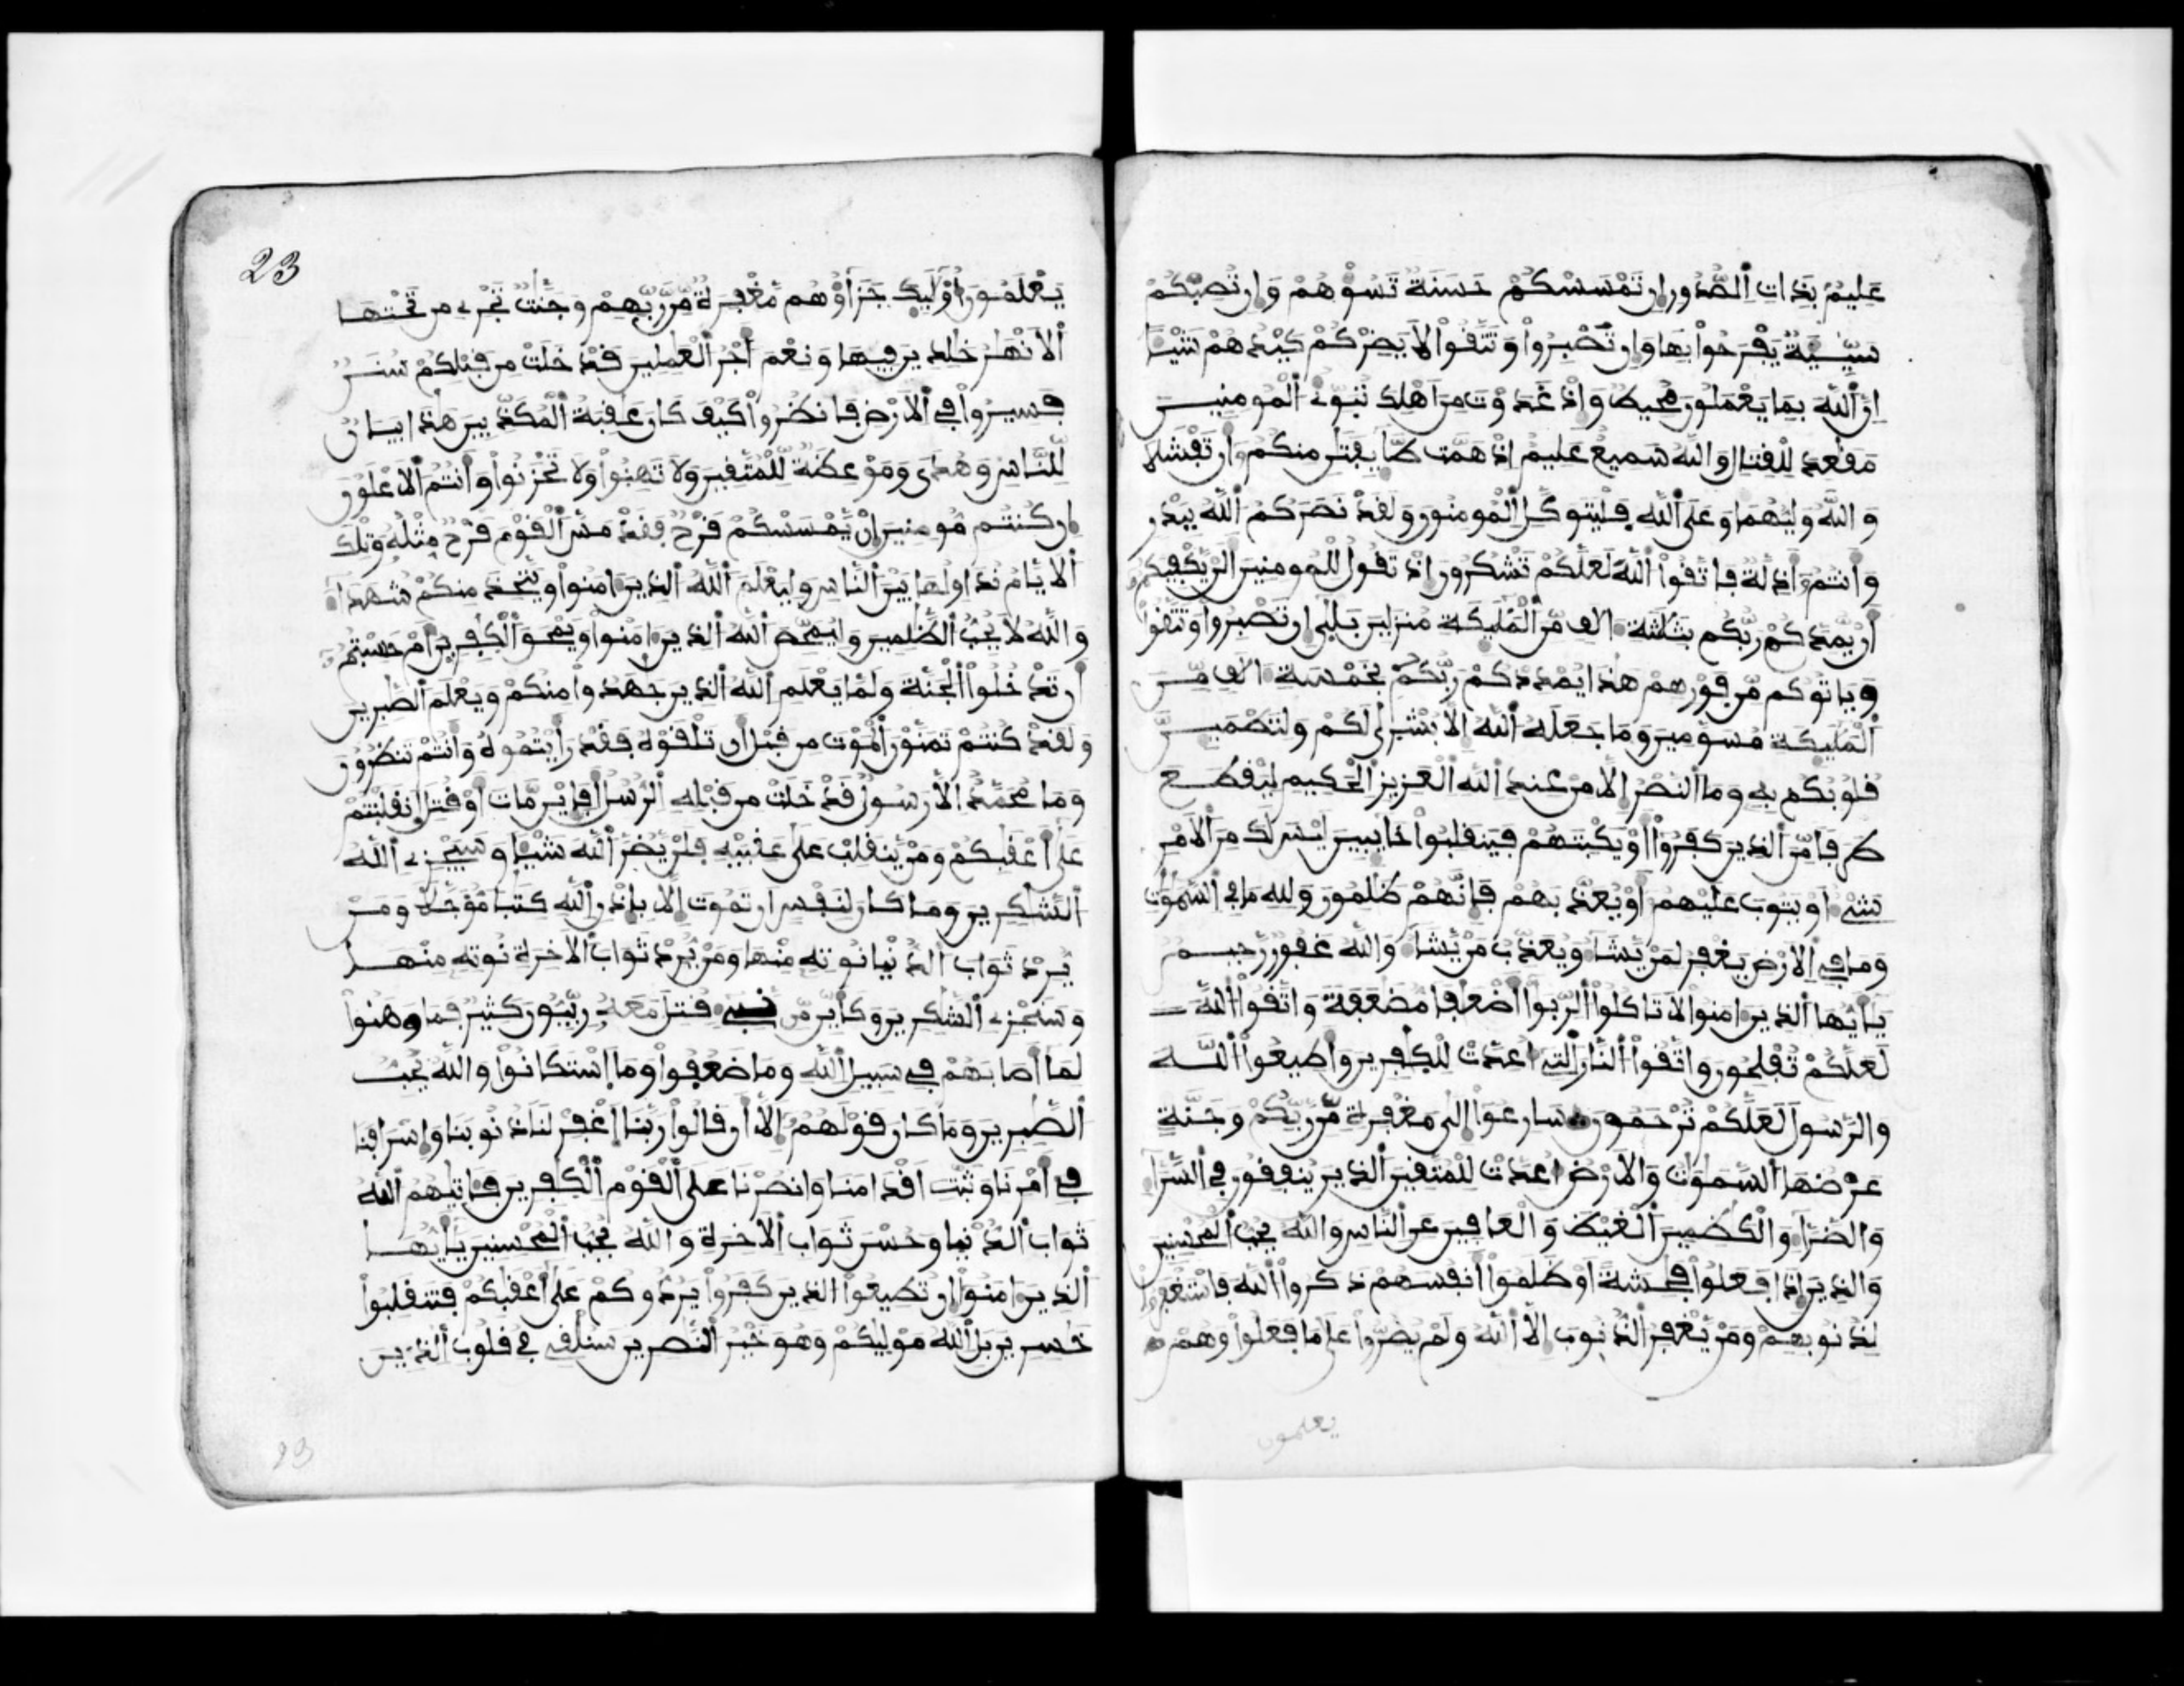 عليم بذات الصدور ان تمسسكم حسنة تسؤهم وان تصبكم
سيئة يفرحوا بها وان تصبروا وتتقوا لا يضركم كيدهم شيئا
ان الله بما يعملون محيط واذ غدوت من اهلك تبوئ المومنين
مقعد للقتال والله سميع عليم اذ همت طايفتن منكم ان تفشلا
والله وليهما وعلى الله فليتوكل المومنون ولقد نصركم الله ببدر
وانتم اذلة فاتقوا الله لعلكم تشكرون اذ تقول للمومنين الن يكفيكم
ان يمدكم ربكم بثلثة الاف من المليكة منزلين بلى ان تصبروا وتتقوا
وياتوكم من فورهم هذا يمددكم ربكم بخمسة الاف من
المليكة مسومين وما جعله الله الا بشرى لكم ولتطمين
قلوبكم به وما النصر الا من عند الله العزيز الحكيم ليقطع
طرفا من الذين كفروا او يكبتهم فينقلبوا خايبين ليس لك من الامر
شيء او يتوب عليهم او يعذبهم فانهم ظلمون ولله ما في السموت
وما في الارض يغفر لمن يشا ويعذب من يشا والله غفور رحيم
يايها الذين امنوا لا تاكلوا الربوا اضعفا مضعفة واتقوا الله
لعلكم تفلحون واتقوا النار التي اعدت للكفرين واطيعوا الله
والرسول لعلكم ترحمون سارعوا الى مغفرة من ربكم وجنة
عرضها السموت والارض اعدت للمتقين الذين ينفقون في السرا
والضرا والكظمين الغيظ والعافين عن الناس والله يحب المحسنين
والذين اذا فعلوا فحشة او ظلموا انفسهم ذكروا الله فاستغفروا
لذنوبهم ومن يغفر الذنوب الا الله ولم يصروا على ما فعلوا وهم
يعلمون
23
يعلمون اوليك جزاؤهم مغفرة من ربهم وجنت تجري من تحتها
الانهر خلدين فيها ونعم اجر العملين قد خلت من قبلكم سنن
فسيروا في الارض فانظروا كيف كان عقبة المكذبين هذا بيان
للناس وهدى وموعظة للمتقين ولا تهنوا ولا تحزنوا وانتم الاعلون
ان كنتم مومنين ان يمسسكم قرح فقد مس القوم قرح مثله وتلك
الايام نداولها بين الناس وليعلم الله الذين امنوا ويتخذ منكم شهدا
والله لا يحب الظلمين وليمحص الله الذين امنوا ويمحق الكفرين ام حسبتم
ان تدخلوا الجنة ولما يعلم الله الذين جهدوا منكم ويعلم الصبرين
ولقد كنتم تمنون الموت من قبل ان تلقوه فقد رايتموه وانتم تنظرون
وما محمد الا رسول قد خلت من قبله الرسل افاين مات او قتل انقلبتم
على اعقبكم ومن ينقلب على عقبيه فلن يضر الله شيئا وسيجزي الله
الشكرين وما كان لنفس ان تموت الا باذن الله كتبا مؤجلا ومن
يرد ثواب الدنيا نوته منها ومن يرد ثواب الاخرة نوته منها
وسنجزي الشكرين وكاين من نبيء قتل معه ربيون كثير فما وهنوا
لما اصابهم في سبيل الله وما ضعفوا وما استكانوا والله يحب
الصبرين وما كان قولهم الا ان قالوا ربنا اغفر لنا ذنوبنا واسرافنا
في امرنا وثبت اقدامنا وانصرنا على القوم الكفرين فاتيهم الله
ثواب الدنيا وحسن ثواب الاخرة والله يحب المحسنين يايها
الذين امنوا ان تطيعوا الذين كفروا يردوكم على اعقبكم فتنقلبوا
خسرين بل الله موليكم وهو خير النصرين سنلقي في قلوب الذين
23